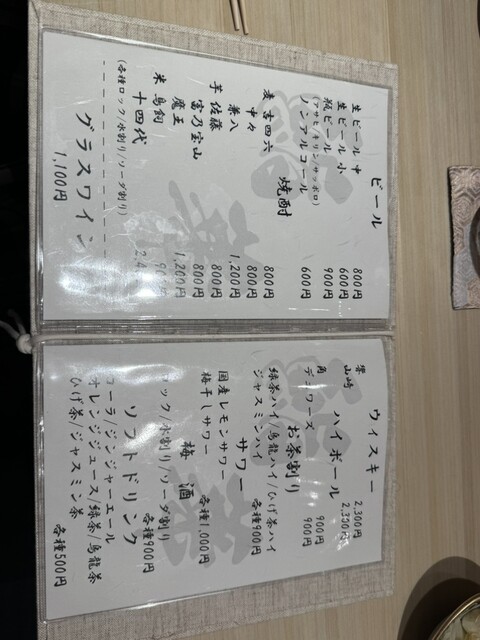 ビール
生ビール 中 800円
生ビール 小 600円
瓶ビール 900円
(アサヒ/キリン/サッポロ)
ノンアルコール 600円
焼酎
麦 吉四六 800円
中々 800円
兼八 1,200円
芋 佐藤 800円
富乃宝山 800円
魔王 1,200円
米 鳥飼 900円
十四代
(各種ロック/水割り/ソーダ割り)
グラスワイン
1,100円
ウィスキー
響 2,300円
山崎 2,300円
ハイボール
角 900円
デュワーズ 900円
お茶割り
緑茶ハイ/烏龍ハイ/ひげ茶ハイ
ジャスミンハイ 各種900円
サワー
国産レモンサワー
梅干しサワー 各種1,000円
梅酒
ロック/水割り/ソーダ割り
各種900円
ソフトドリンク
コーラ/ジンジャーエール
オレンジジュース/緑茶/烏龍茶
ひげ茶/ジャスミン茶
各種500円